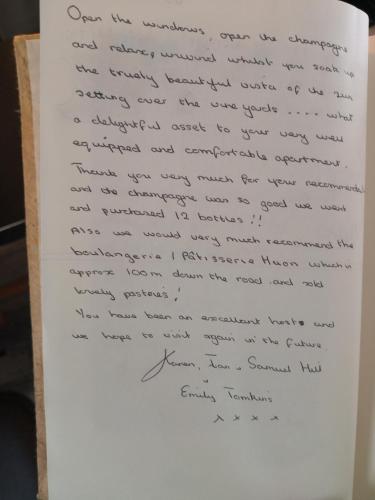 Open the windows, open the champagne
and relax, unwind whilst you soak up
the truely beautiful vista of the sun
setting over the vineyards .... what
a delightful asset to your very well
equipped and comfortable apartment.
Thank you very much for your recommended
and the champagne was so good we went
and purchased 12 bottles!!
Also we would very much recommend the
boulangerie / Pâtisserie Huon which is
approx 100m down the road and sold
lovely pastries!
You have been an excellent host and
we hope to visit again in the future
Karen, Ian, Samuel Hill
Emily Tomkins
x x x x